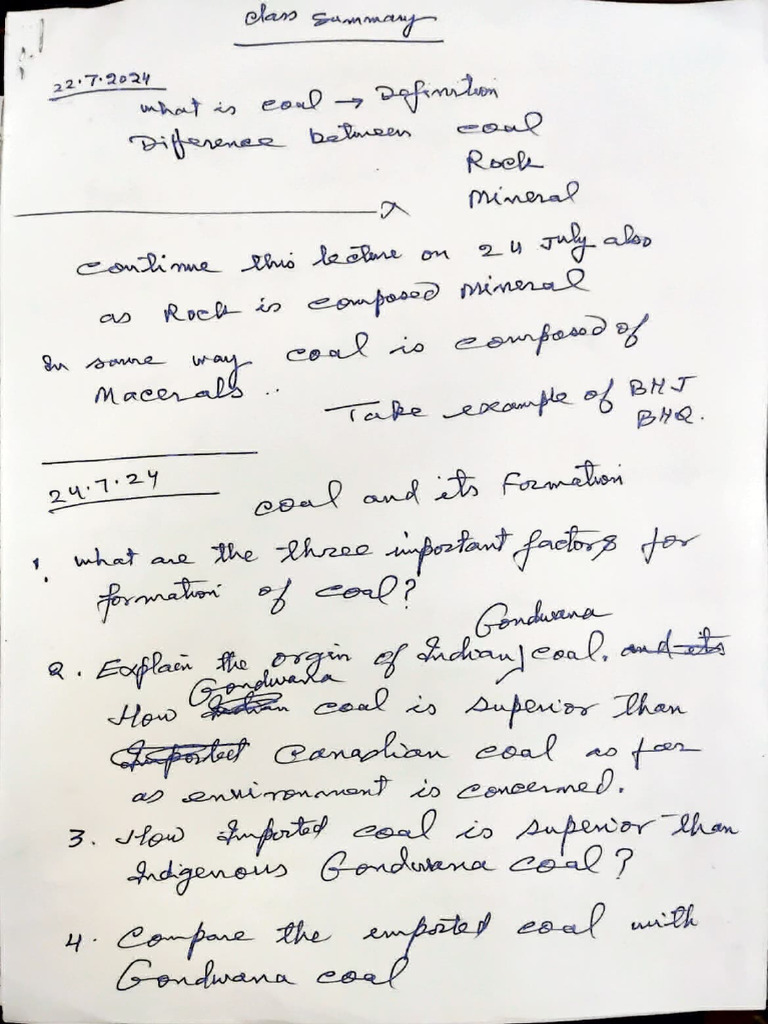 Class Summary
22.7.2024
What is coal → Definition
Difference between coal
Rock
Mineral
Continue this lecture on 24 July also
as Rock is composed Mineral
In same way coal is composed of
Macerals ..
Take example of BHJ
BHQ.
24.7.24
coal and its Formation
1. What are the three important factors for
formation of coal?
Gondwana
2. Explain the orgin of Indian coal. and its
Gondwana
How Indian coal is superior than
Imported Canadian coal as far
as environment is concerned.
3. How Imported coal is superior than
Indigenous Gondwana coal?
4. Compare the emported coal with
Gondwana coal